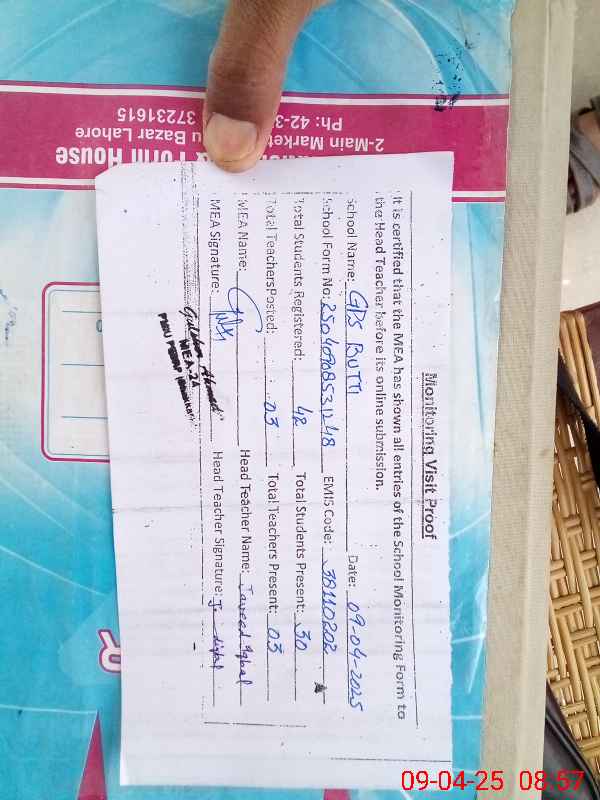 Monitoring Visit Proof
It is certified that the MEA has shown all entries of the School Monitoring Form to
the Head Teacher before its online submission.
School Name: GPS BUTTI Date: 09-04-2025
School Form No: EMIS Code: 38110202
Total Students Registered: 42 Total Students Present: 30
Total TeachersPosted: 03 Total Teachers Present: 03
MEA Name: Head Teacher Name: Javeed Iqbal
MEA Signature: Head Teacher Signature: J. Iqbal
MEA-2A
Form House
2-Main Market
Bazar Lahore
Ph: 42-3
37231615
09-04-25 08:57